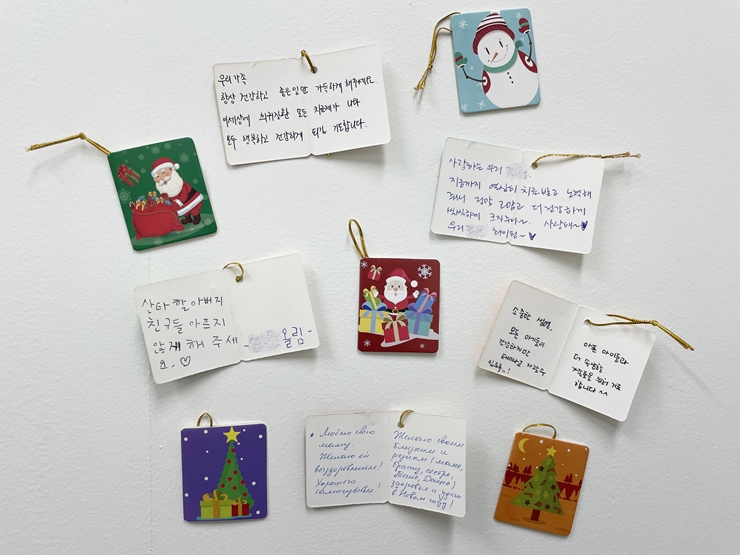 우리가족
항상 건강하고 좋은일만 가득하게 해주세요
이세상에 희귀질환 모든 치료제가 나와
모두 행복하고 건강하게 되길 기도합니다.
사랑하는 우리
지금까지 열심히 치료받고 노력해
줘서 정말 고맙고 더 건강하게
씩씩하게 크자꾸나~ 사랑해~♥
우리 화이팅~♥
산타 할아버지
친구들 아프지
않게 해 주세
요.♡
올림-
소중한 생명,
모든 아이들이
건강하게만
태어나고 자랄수
있기를..!
아픈 아이들과
더 고생하는
가족들을 위해 기도
합니다 ^^
Люблю свою
маму.
Желаю ей
выздоровления!
Хорошего
самочувствия!
Желаю своим
близким и
родным (маме,
брату, сестре,
)
здоровья и удачи
в Новом году!